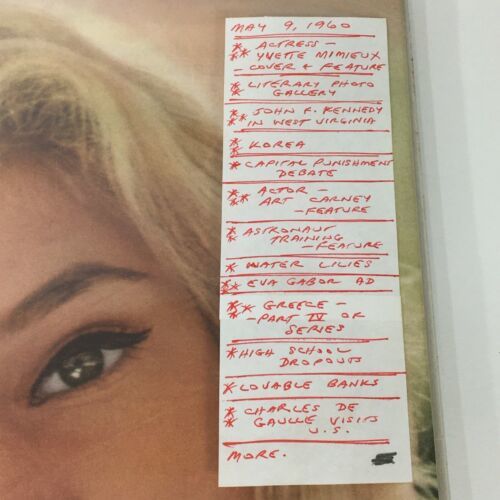 MAY 9, 1960
* ACTRESS –
** YVETTE MIMIEUX
– COVER & FEATURE
* LITERARY PHOTO
* GALLERY
* JOHN F. KENNEDY
** IN WEST VIRGINIA
* KOREA
* CAPITAL PUNISHMENT
DEBATE
* ACTOR –
** ART CARNEY
– FEATURE
* ASTRONAUT
* TRAINING
– FEATURE
* WATER LILIES
** EVA GABOR AD
** GREECE –
* – PART IV OF
SERIES
* HIGH SCHOOL
DROPOUTS
* LOVABLE BANKS
* CHARLES DE
* GAULLE VISITS
U.S.
MORE.